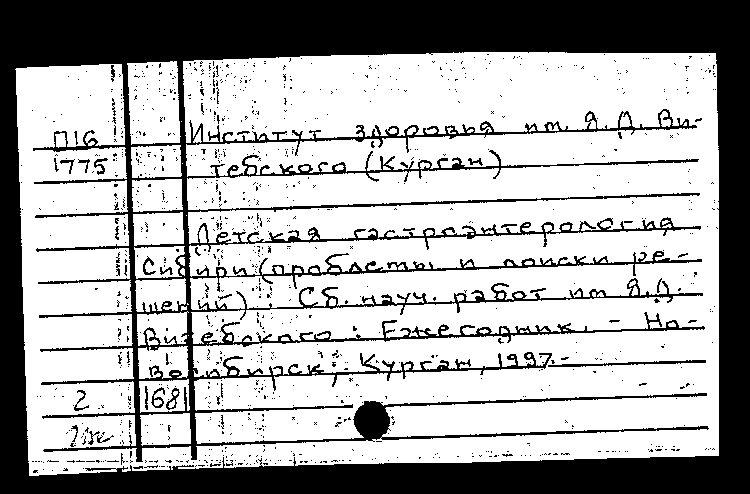 П16 Институт здоровья им. Я.Д. Ви-
1775 тебского (Курган)
Детская гастроэнтерология
Сибири (проблемы и поиски ре-
шений) : Сб. науч. работ им Я.Д.
Витебского : Ежегодник. - Но-
восибирск; Курган, 1997.-
2 1681